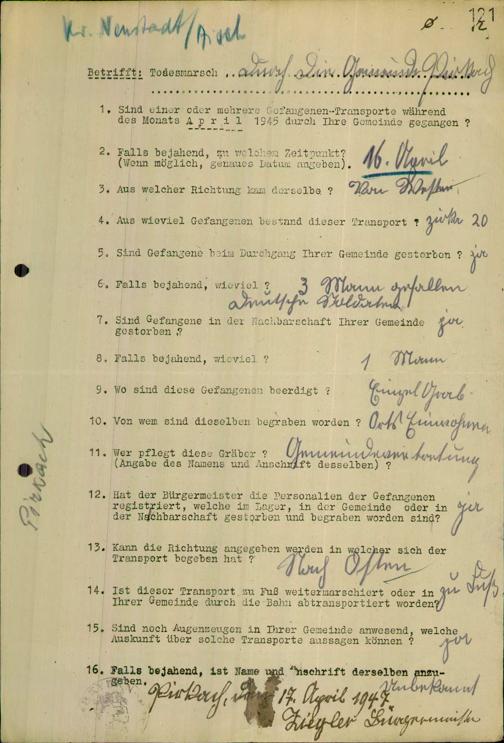 121
Kr. Neustadt/Aisch
Betrifft: Todesmarsch .. durch die Gemeinde Pirkach
1. Sind einer oder mehrere Gefangenen-Transporte während
des Monats April 1945 durch Ihre Gemeinde gegangen ?
2. Falls bejahend, zu welchem Zeitpunkt?
(Wenn möglich, genaues Datum angeben). 16. April
3. Aus welcher Richtung kam derselbe ? Von Westen
4. Aus wieviel Gefangenen bestand dieser Transport ? zirka 20
5. Sind Gefangene beim Durchgang Ihrer Gemeinde gestorben ? ja
6. Falls bejahend, wieviel ? 3 Mann gefallen
deutsche Soldaten
7. Sind Gefangene in der Nachbarschaft Ihrer Gemeinde ja
gestorben ?
8. Falls bejahend, wieviel ? 1 Mann
9. Wo sind diese Gefangenen beerdigt ? Einzel Grab
10. Von wem sind dieselben begraben worden ? Orts Einwohner
11. Wer pflegt diese Gräber ? Gemeindevertretung
(Angabe des Namens und Anschrift desselben) ?
12. Hat der Bürgermeister die Personalien der Gefangenen
registriert, welche im Lager, in der Gemeinde oder in ja
der Nachbarschaft gestorben und begraben worden sind?
13. Kann die Richtung angegeben werden in welcher sich der
Transport begeben hat ? Nach Osten
14. Ist dieser Transport zu Fuß weitermarschiert oder in zu Fuß.
Ihrer Gemeinde durch die Bahn abtransportiert worden?
15. Sind noch Augenzeugen in Ihrer Gemeinde anwesend, welche
Auskunft über solche Transporte aussagen können ? ja
16. Falls bejahend, ist Name und Anschrift derselben anzu-
geben. Unbekannt
Pirkach, den 17. April 1947
Ziegler Bürgermeister
Pirkach